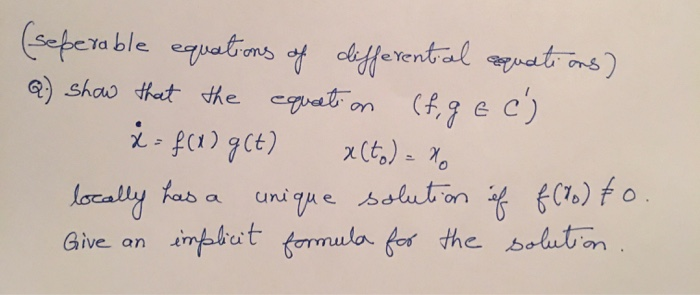 (seperable equations of differential equations)
Q.) Show that the equation (f, g ∈ C')
ẋ = f(x) g(t) x(t₀) = x₀
locally has a unique solution if f(x₀) ≠ 0.
Give an implicit formula for the solution.